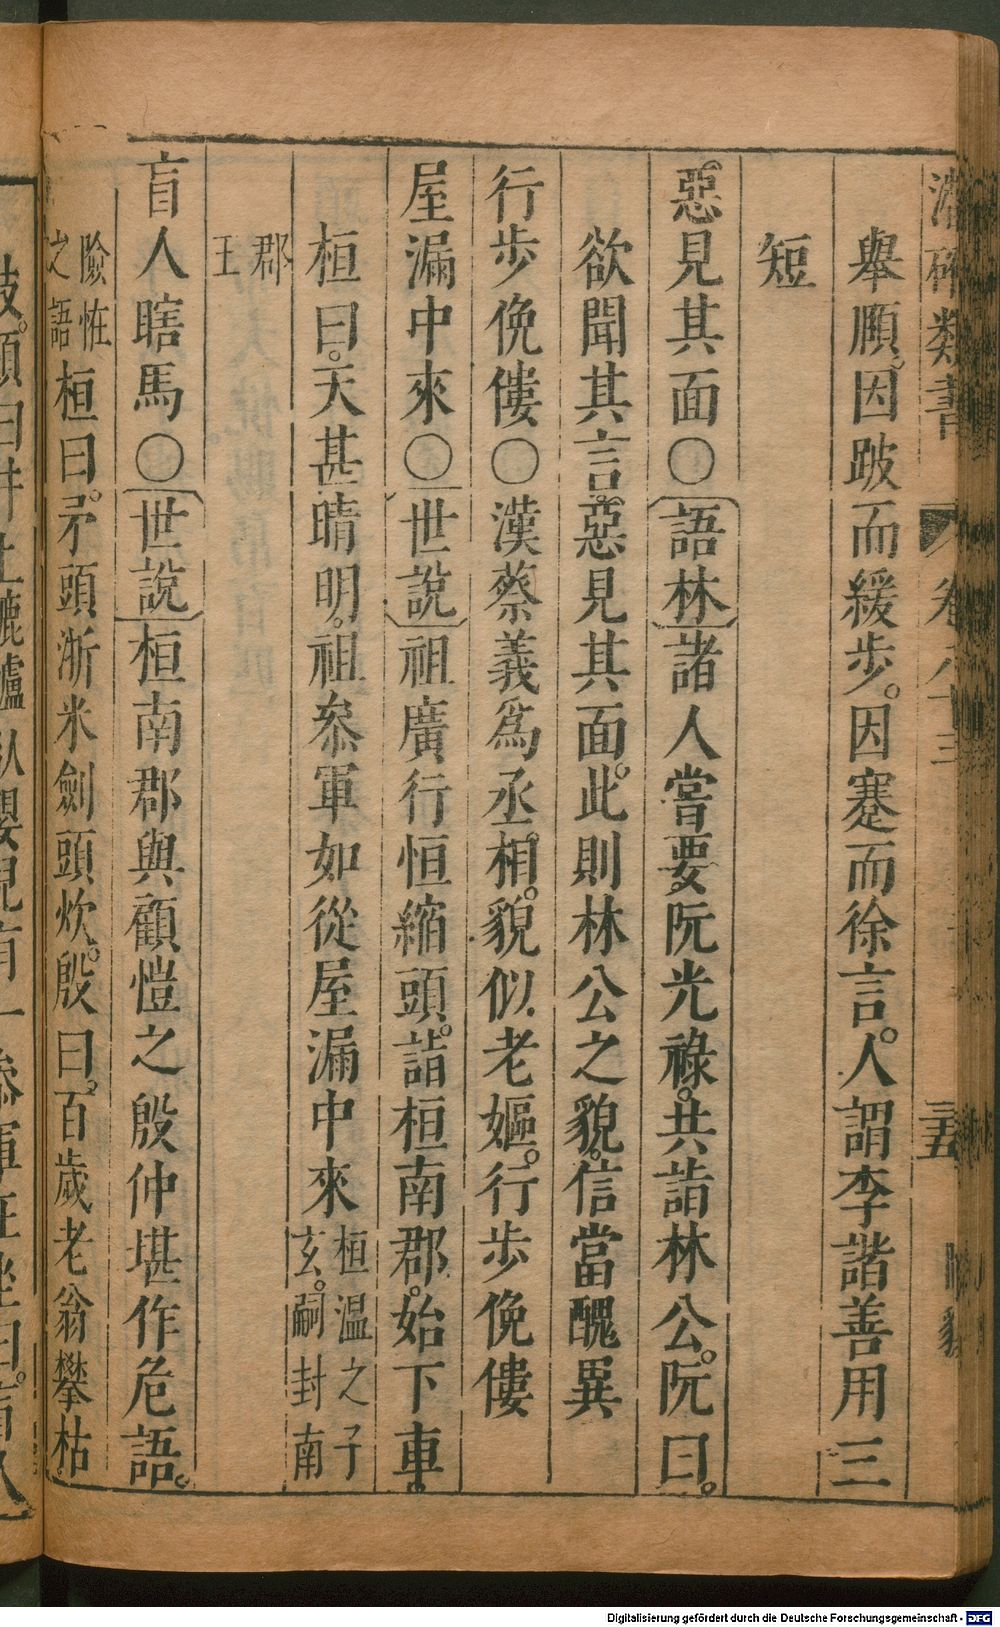 潛確類書 卷八十三 三五
舉頤。因跛而緩步。因蹇而徐言。人謂李諧善用三
短
惡見其面〇語林諸人嘗要阮光祿。共詣林公。阮曰。
欲聞其言。惡見其面。此則林公之貌。信當醜異
行步俛僂〇漢蔡義爲丞相。貌似老嫗。行步俛僂
屋漏中來〇世說祖廣行恒縮頭。詣桓南郡。始下車。
桓曰。天甚晴明。祖叅軍如從屋漏中來桓溫之子玄。嗣封南
郡王
盲人瞎馬〇世說桓南郡與顧愷之殷仲堪作危語。
險怪之語桓曰。矛頭淅米劍頭炊。殷曰。百歲老翁攀枯
枝。顧曰井上轆轤臥嬰兒有一叅軍在坐曰。盲人
Digitalisierung gefördert durch die Deutsche Forschungsgemeinschaft - DFG